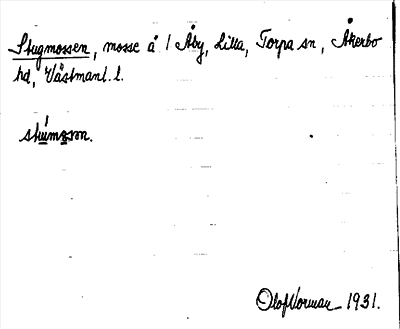 Skugmossen, mosse å 1 Åby, Lilla, Torpa sn, Åkerbo
hd, Västmanl. l.
skúmosʂn.
Olof Norman 1931.